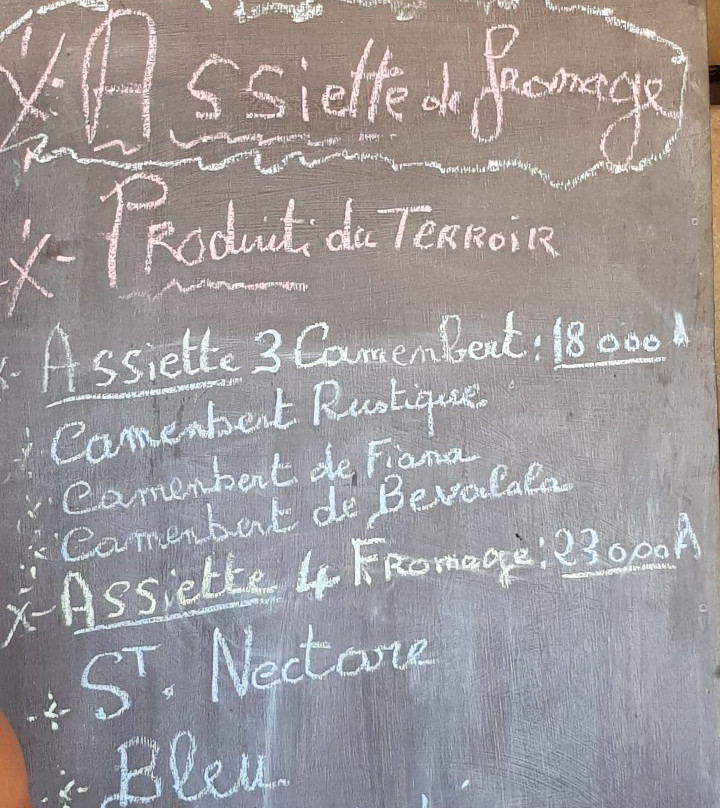 Assiette de fromage
Produit du Terroir
Assiette 3 Camenbert : 18 000 A
Camenbert Rustique
Camenbert de Fiana
Camenbert de Bevalala
Assiette 4 Fromage : 23 000 A
St. Nectare
Bleu